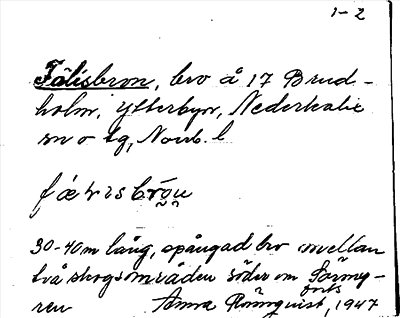 1-2
Fälisbron, bro å 17 Brud-
holm, Ytterbyn, Nederkalix
sn o tg, Norrb. l
30-40 m lång, spångad bro mellan
två skogsområden söder om
forts
ren Anna Rönnqvist, 1947